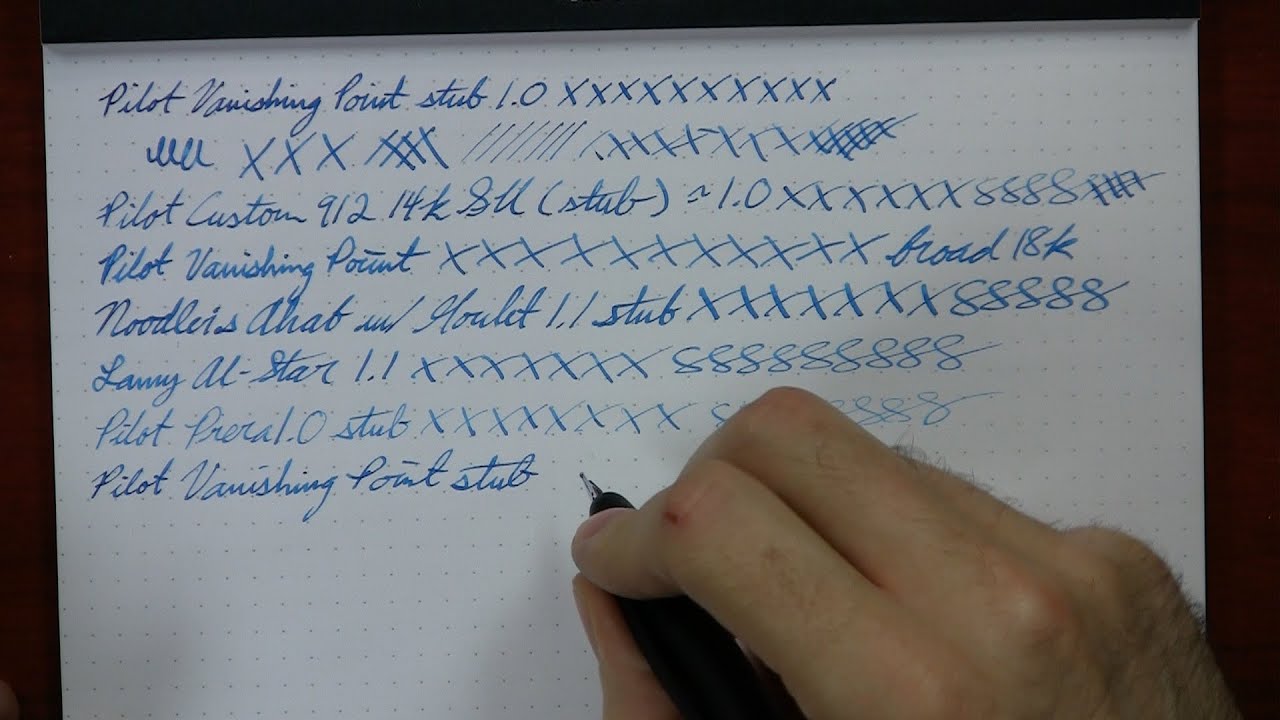 Pilot Vanishing Point stub 1.0 XXXXXXXXXX
uu XXX XXXX //////// XXXXXXXXXXX
Pilot Custom 912 14k SU (stub) ~1.0 XXXXXX 8888 XXXX
Pilot Vanishing Point XXXXXXXXXXX broad 18k
Noodler's Ahab w/ Goulet 1.1 stub XXXXXXX 88888
Lamy Al-Star 1.1 XXXXXXX 888888888
Pilot Prera 1.0 stub XXXXXXXX 8 8888
Pilot Vanishing Point stub